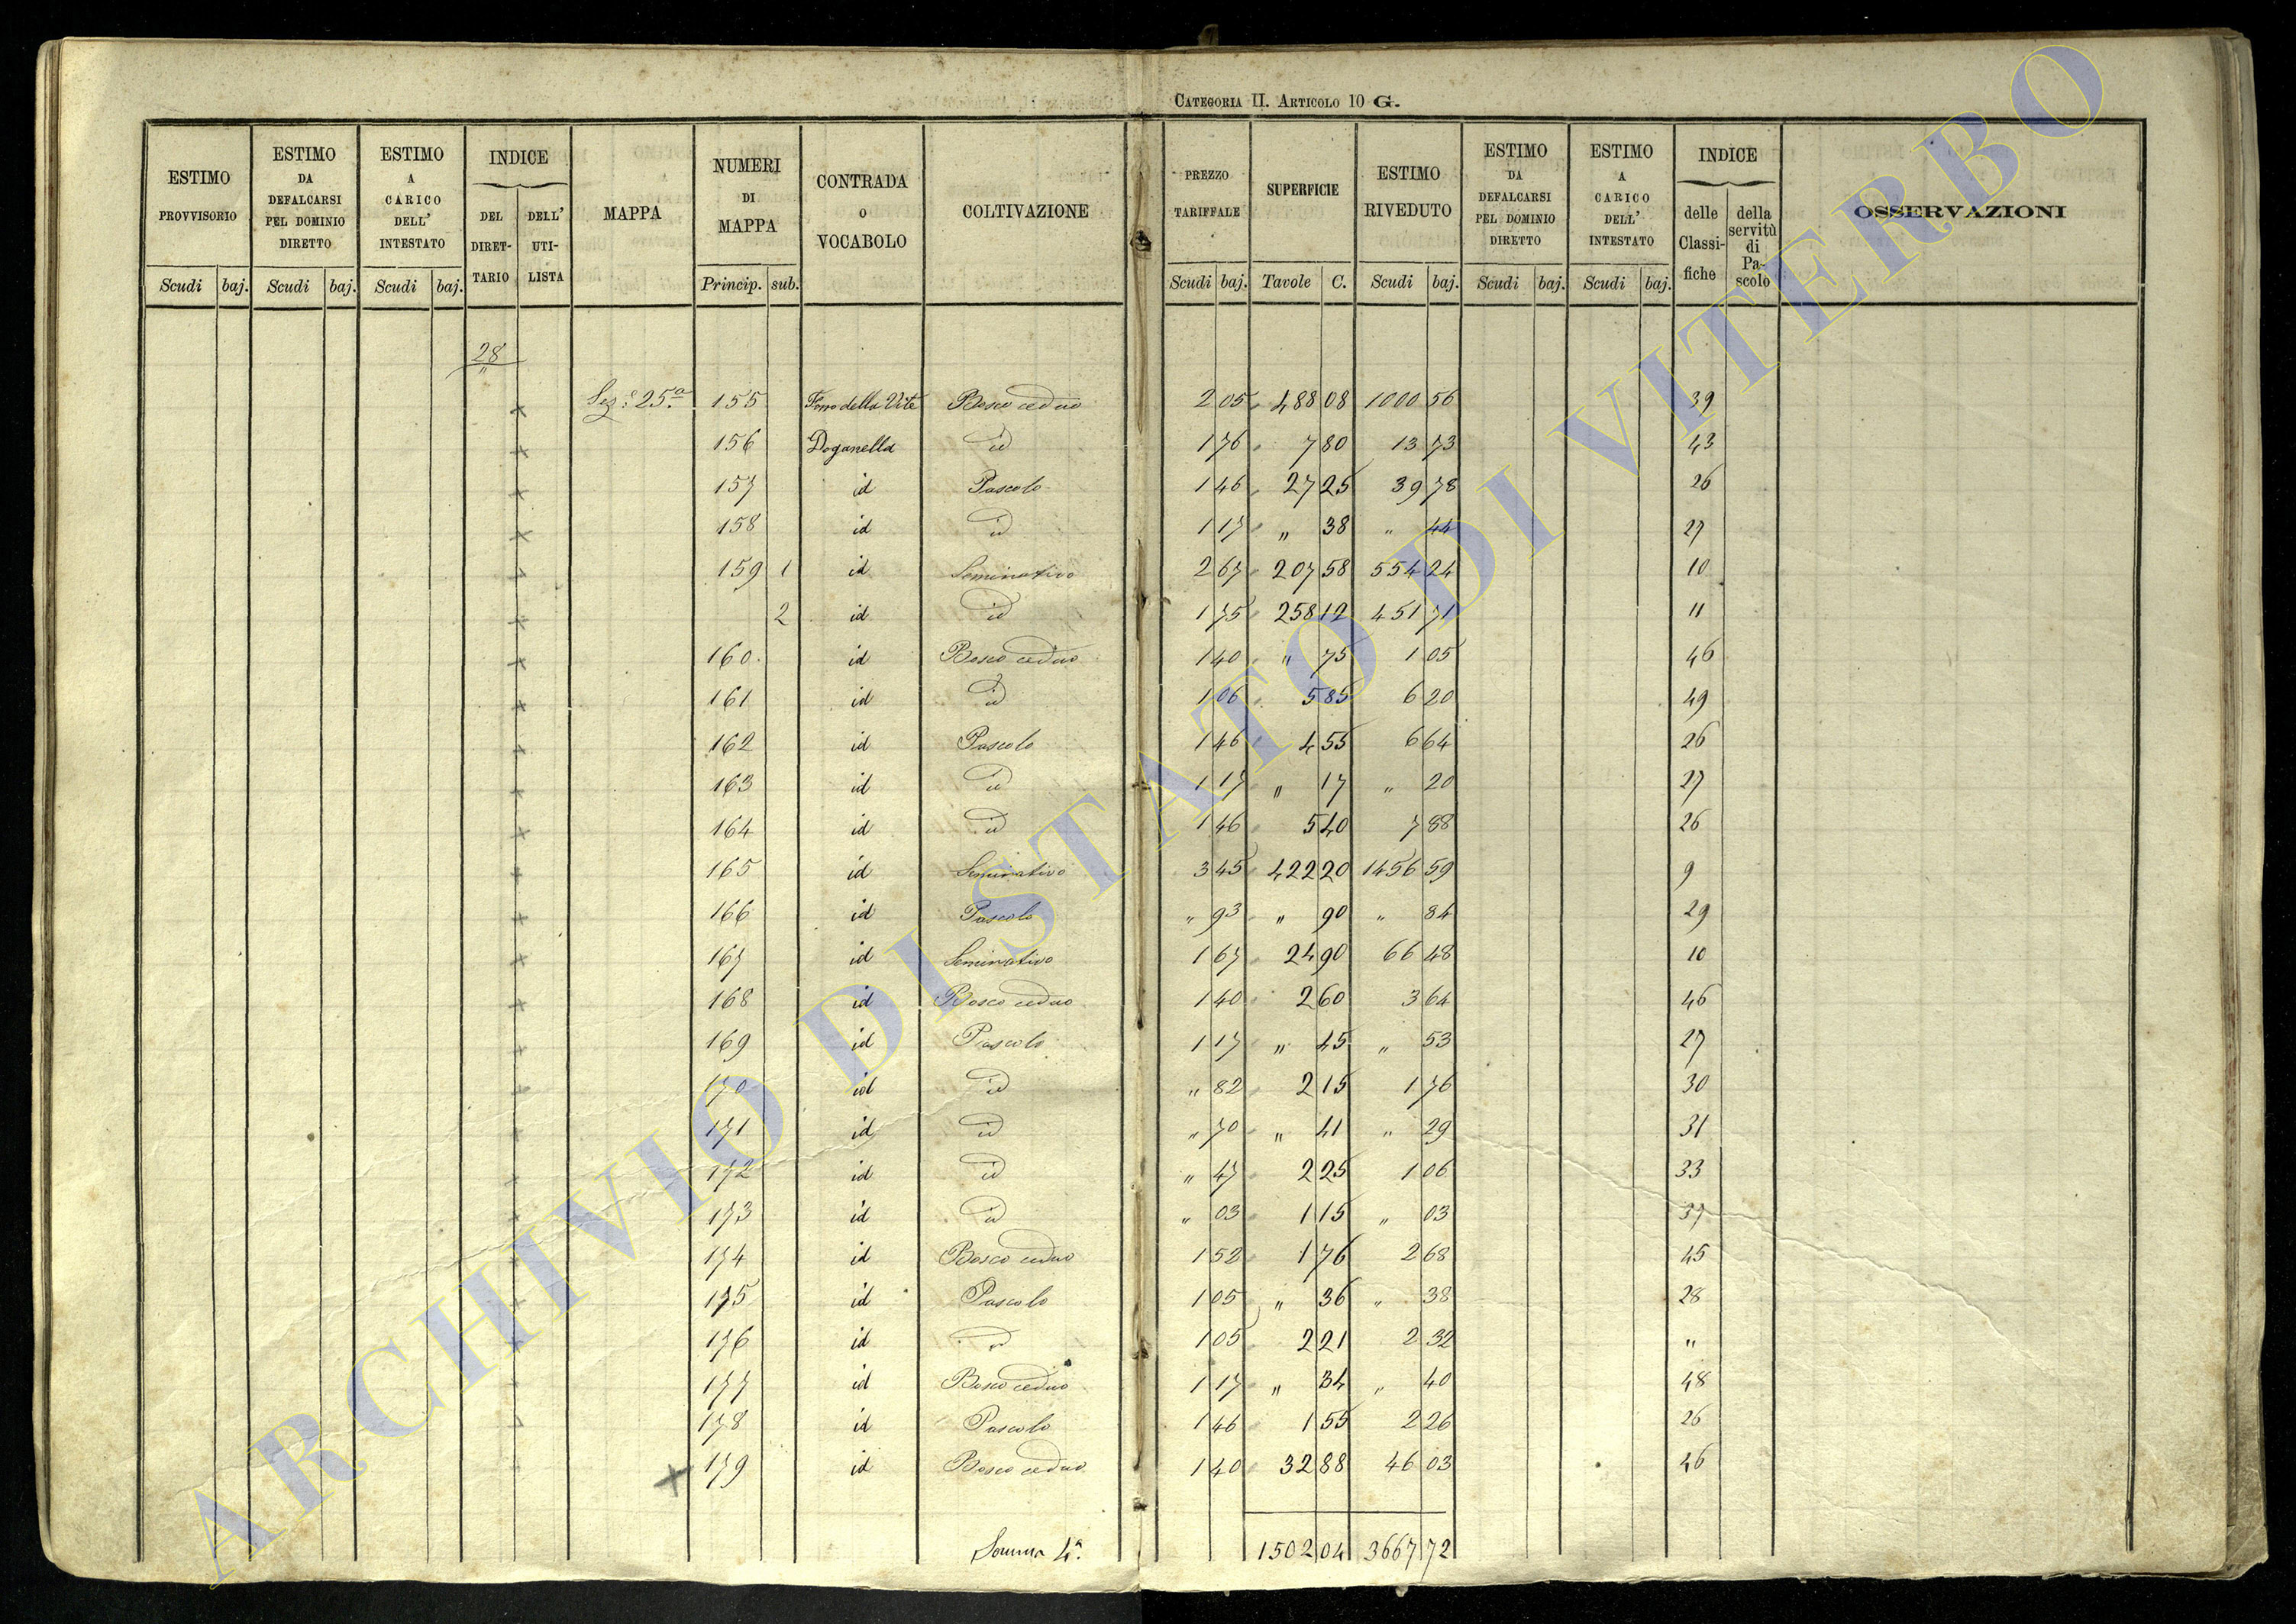 CATEGORIA II. ARTICOLO 10 G.
ESTIMO PROVVISORIO | ESTIMO DA DEFALCARSI PEL DOMINIO DIRETTO | ESTIMO A CARICO DELL' INTESTATO | INDICE DEL DIRETTARIO | DELL' UTILISTA | MAPPA | NUMERI DI MAPPA | CONTRADA O VOCABOLO | COLTIVAZIONE | PREZZO TARIFFALE | SUPERFICIE | ESTIMO RIVEDUTO | ESTIMO DA DEFALCARSI PEL DOMINIO DIRETTO | ESTIMO A CARICO DELL' INTESTATO | INDICE delle Classifiche | della servitù di Pascolo | OSSERVAZIONI
Scudi baj. | Scudi baj. | Scudi baj. | Princip. sub. | Scudi baj. | Tavole C. | Scudi baj. | Scudi baj. | Scudi baj.
28
"
Sez.e 25a 155 Fosso della Vite Bosco ceduo 2 05 488 08 1000 56 39
156 Doganella id 1 76 7 80 13 73 43
157 id Pascolo 1 46 27 25 39 78 26
158 id id 1 17 " 38 " 44 27
159 1 id Seminativo 2 67 207 58 554 24 10
2 id id 1 75 258 12 451 71 11
160 id Bosco ceduo 1 40 " 75 1 05 46
161 id id 1 06 5 85 6 20 49
162 id Pascolo 1 46 4 55 6 64 26
163 id id 1 17 " 17 " 20 27
164 id id 1 46 5 40 7 88 26
165 id Seminativo 3 45 422 20 1456 59 9
166 id Pascolo " 93 " 90 " 84 29
167 id Seminativo 1 67 24 90 66 48 10
168 id Bosco ceduo 1 40 2 60 3 64 46
169 id Pascolo 1 17 " 45 " 53 27
170 id id " 82 2 15 1 76 30
171 id id " 70 " 41 " 29 31
172 id id " 47 2 25 1 06 33
173 id id " 03 1 15 " 03 37
174 id Bosco ceduo 1 52 1 76 2 68 45
175 id Pascolo 1 05 " 36 " 38 28
176 id id 1 05 2 21 2 32 "
177 id Bosco ceduo 1 17 " 34 " 40 48
178 id Pascolo 1 46 1 55 2 26 26
179 id Bosco ceduo 1 40 32 88 46 03 46
Somma 4a. 1502 04 3667 72
ARCHIVIO DI STATO DI VITERBO